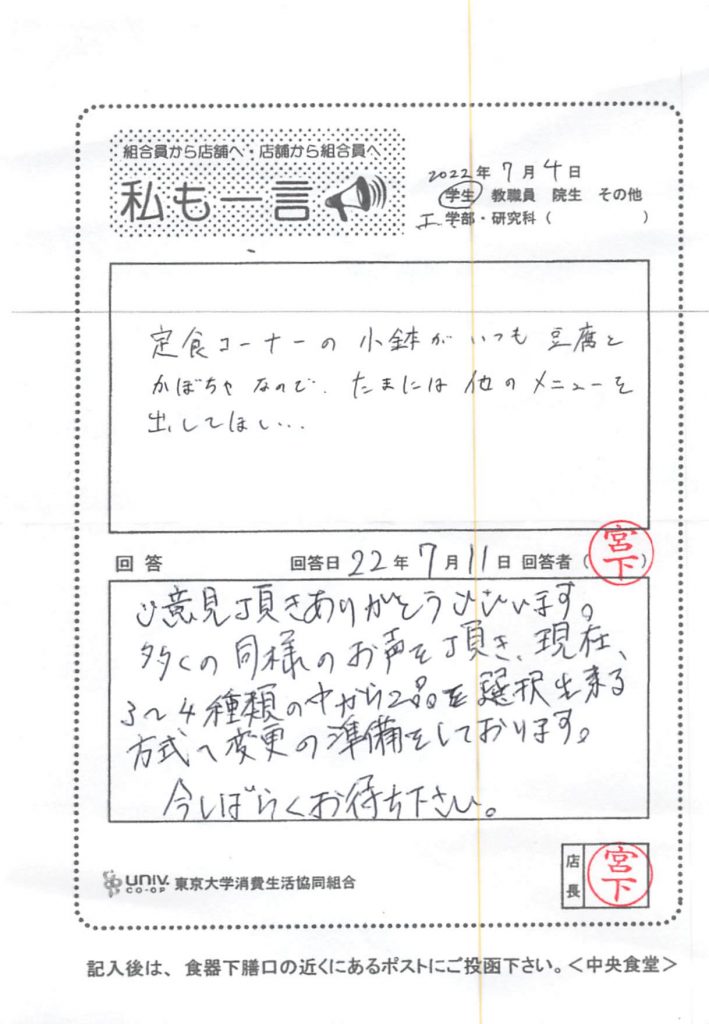 組合員から店舗へ・店舗から組合員へ
私も一言
2022年 7月 4日
学生 教職員 院生 その他
工 学部・研究科（ ）
定食コーナーの 小鉢が いつも 豆腐と
かぼちゃ なので、たまには 他の メニューを
出してほしい…
回答 回答日 22年 7月 11日 回答者（宮下）
ご意見頂きありがとうございます。
多くの同様のお声を頂き、現在、
3〜4種類の中から2品を選択出来る
方式へ変更の準備をしております。
今しばらくお待ち下さい。
univ. CO-OP 東京大学消費生活協同組合
店長 宮下
記入後は、食器下膳口の近くにあるポストにご投函下さい。＜中央食堂＞